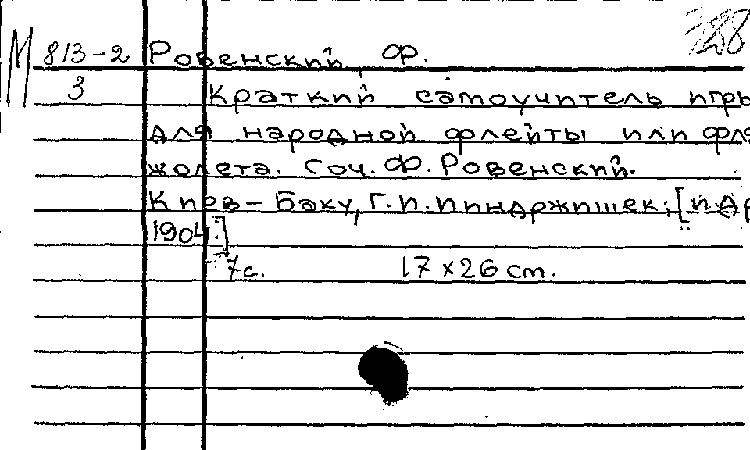 М 813-2 Ровенский, Ф.
3 Краткий самоучитель игры
для народной флейты или фла
жолета. Соч. Ф. Ровенский.
Киев-Баку, Г.И. Индржишек, [и др
1904.]
7с. 17×26 cm.